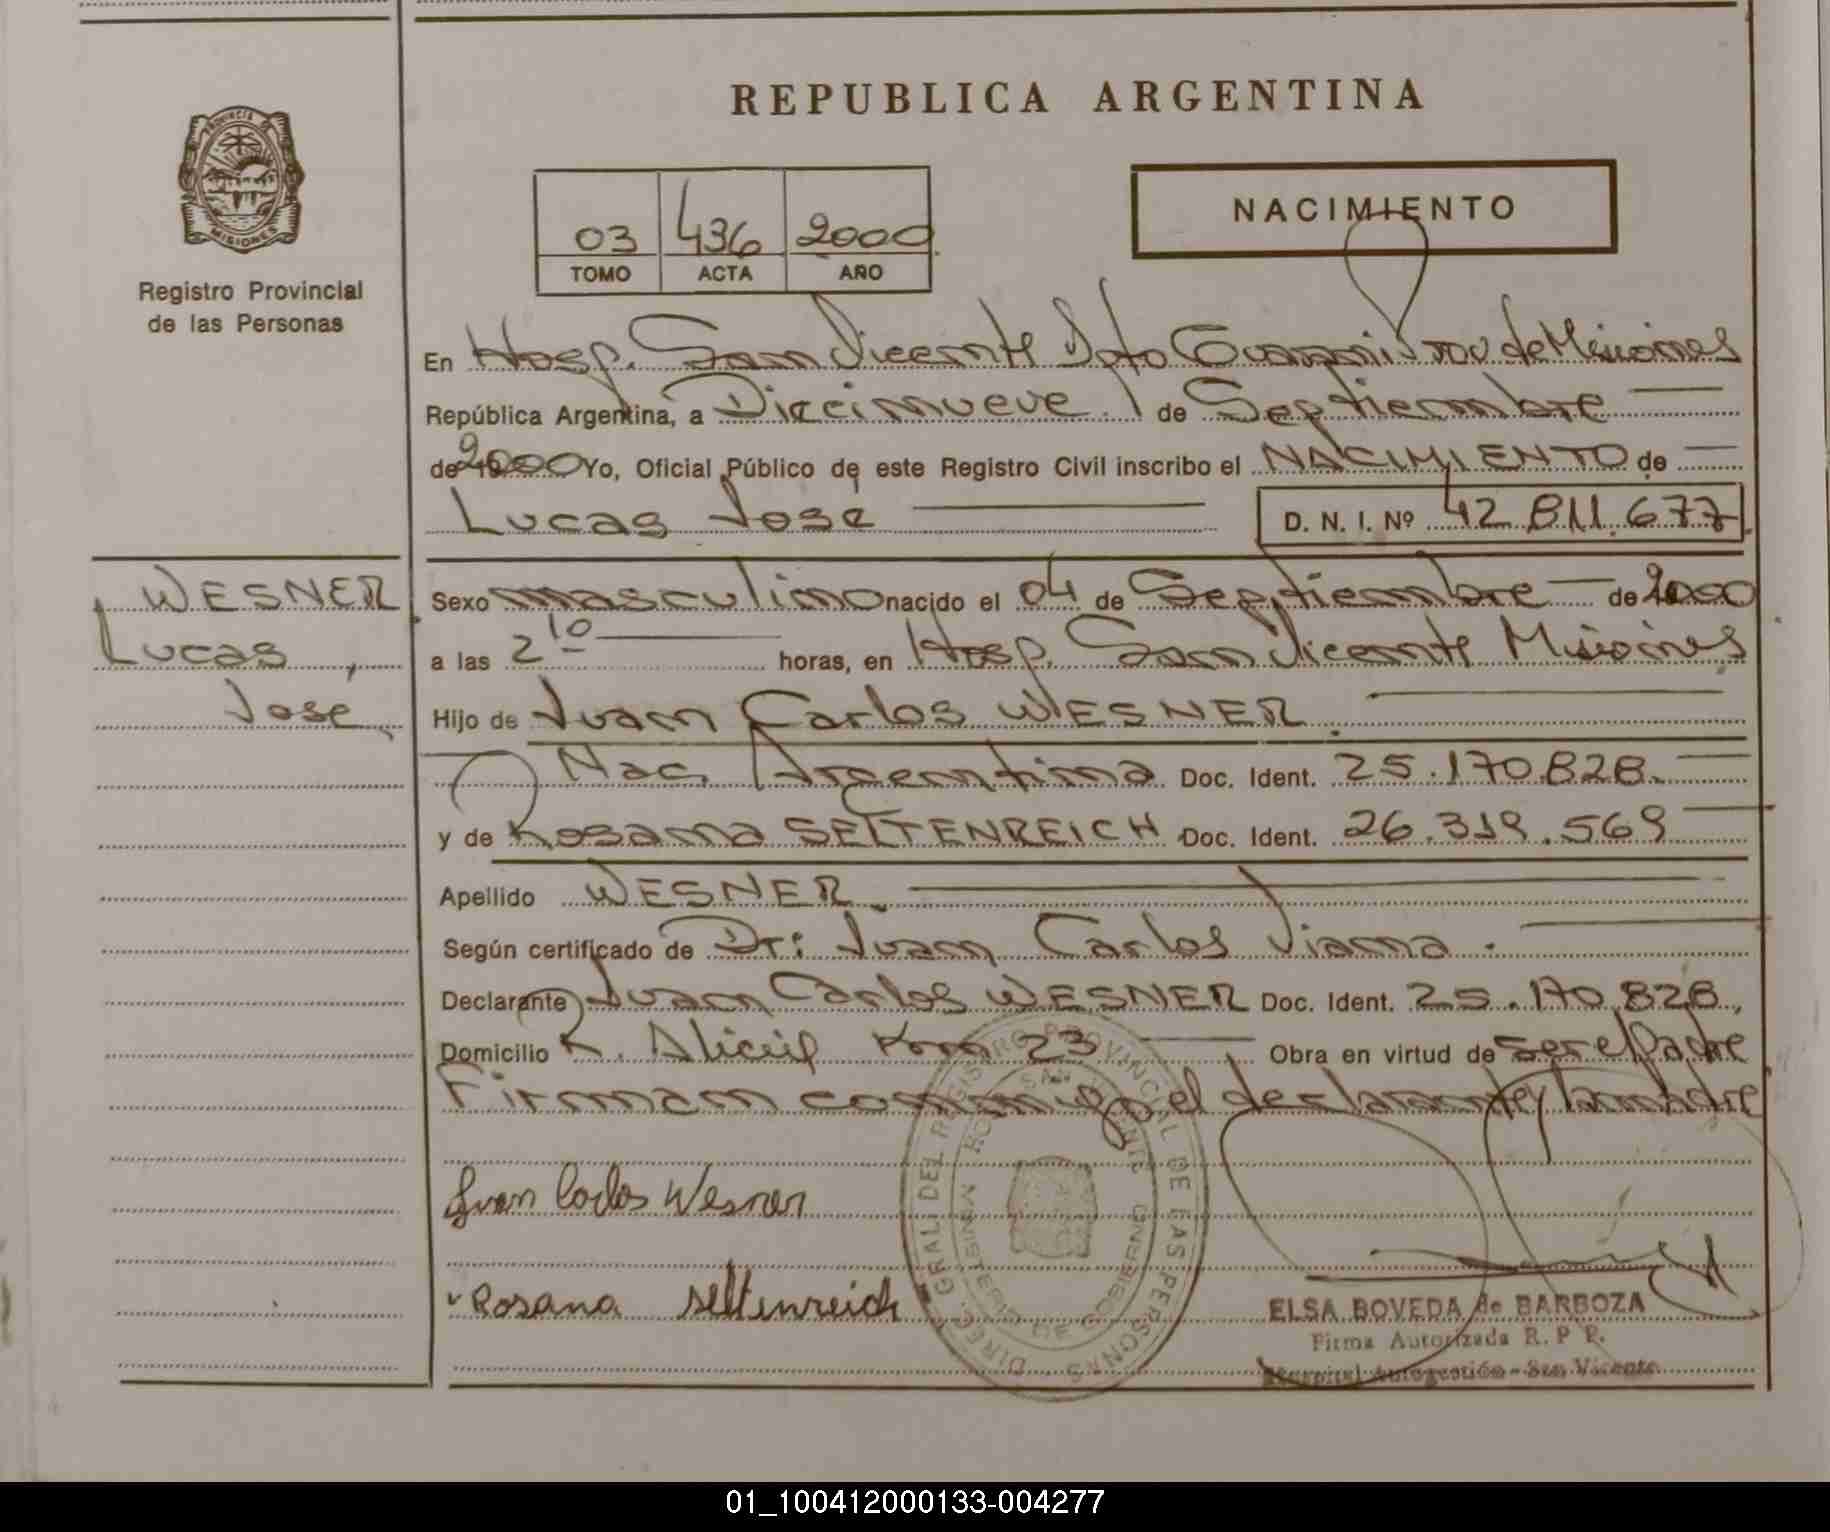 REPUBLICA ARGENTINA
PROVINCIA DE
MISIONES
Registro Provincial
de las Personas
03 436 2000
TOMO ACTA AÑO
NACIMIENTO
En Hosp. San Vicente Dpto Guarani Prov de Misiones
República Argentina, a Diecinueve de Septiembre
de 2000 Yo, Oficial Público de este Registro Civil inscribo el NACIMIENTO de
Lucas José D. N. I. Nº 42.811.677
WESNER
Lucas,
José
Sexo masculino nacido el 04 de Septiembre de 2000
a las 2 10 horas, en Hosp. San Vicente Misiones
Hijo de Juan Carlos WESNER
Nac. Argentina Doc. Ident. 25.170.828.
y de Rosana SELTENREICH Doc. Ident. 26.319.569
Apellido WESNER.
Según certificado de Dr: Juan Carlos Viana.
Declarante Juan Carlos WESNER Doc. Ident. 25.170.828,
Domicilio Km 23 Obra en virtud de ser el Padre
Firman conmigo el declarante y la madre
Juan Carlos Wesner
Rosana Seltenreich
DIREC. GRAL DEL REGISTRO PROVINCIAL DE LAS PERSONAS
HOSP. SAN VICENTE
MINISTERIO DE GOBIERNO
ELSA BOVEDA de BARBOZA
Firma Autorizada R. P. P.
Hospital Autogestión - San Vicente
01_100412000133-004277